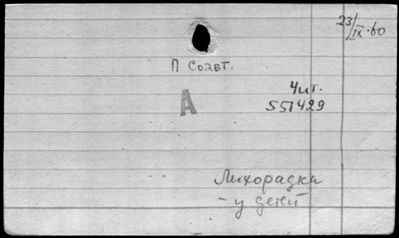 23/IX-60
П Соавт.
Чит.
А
551429
Лихорадка
- у детей